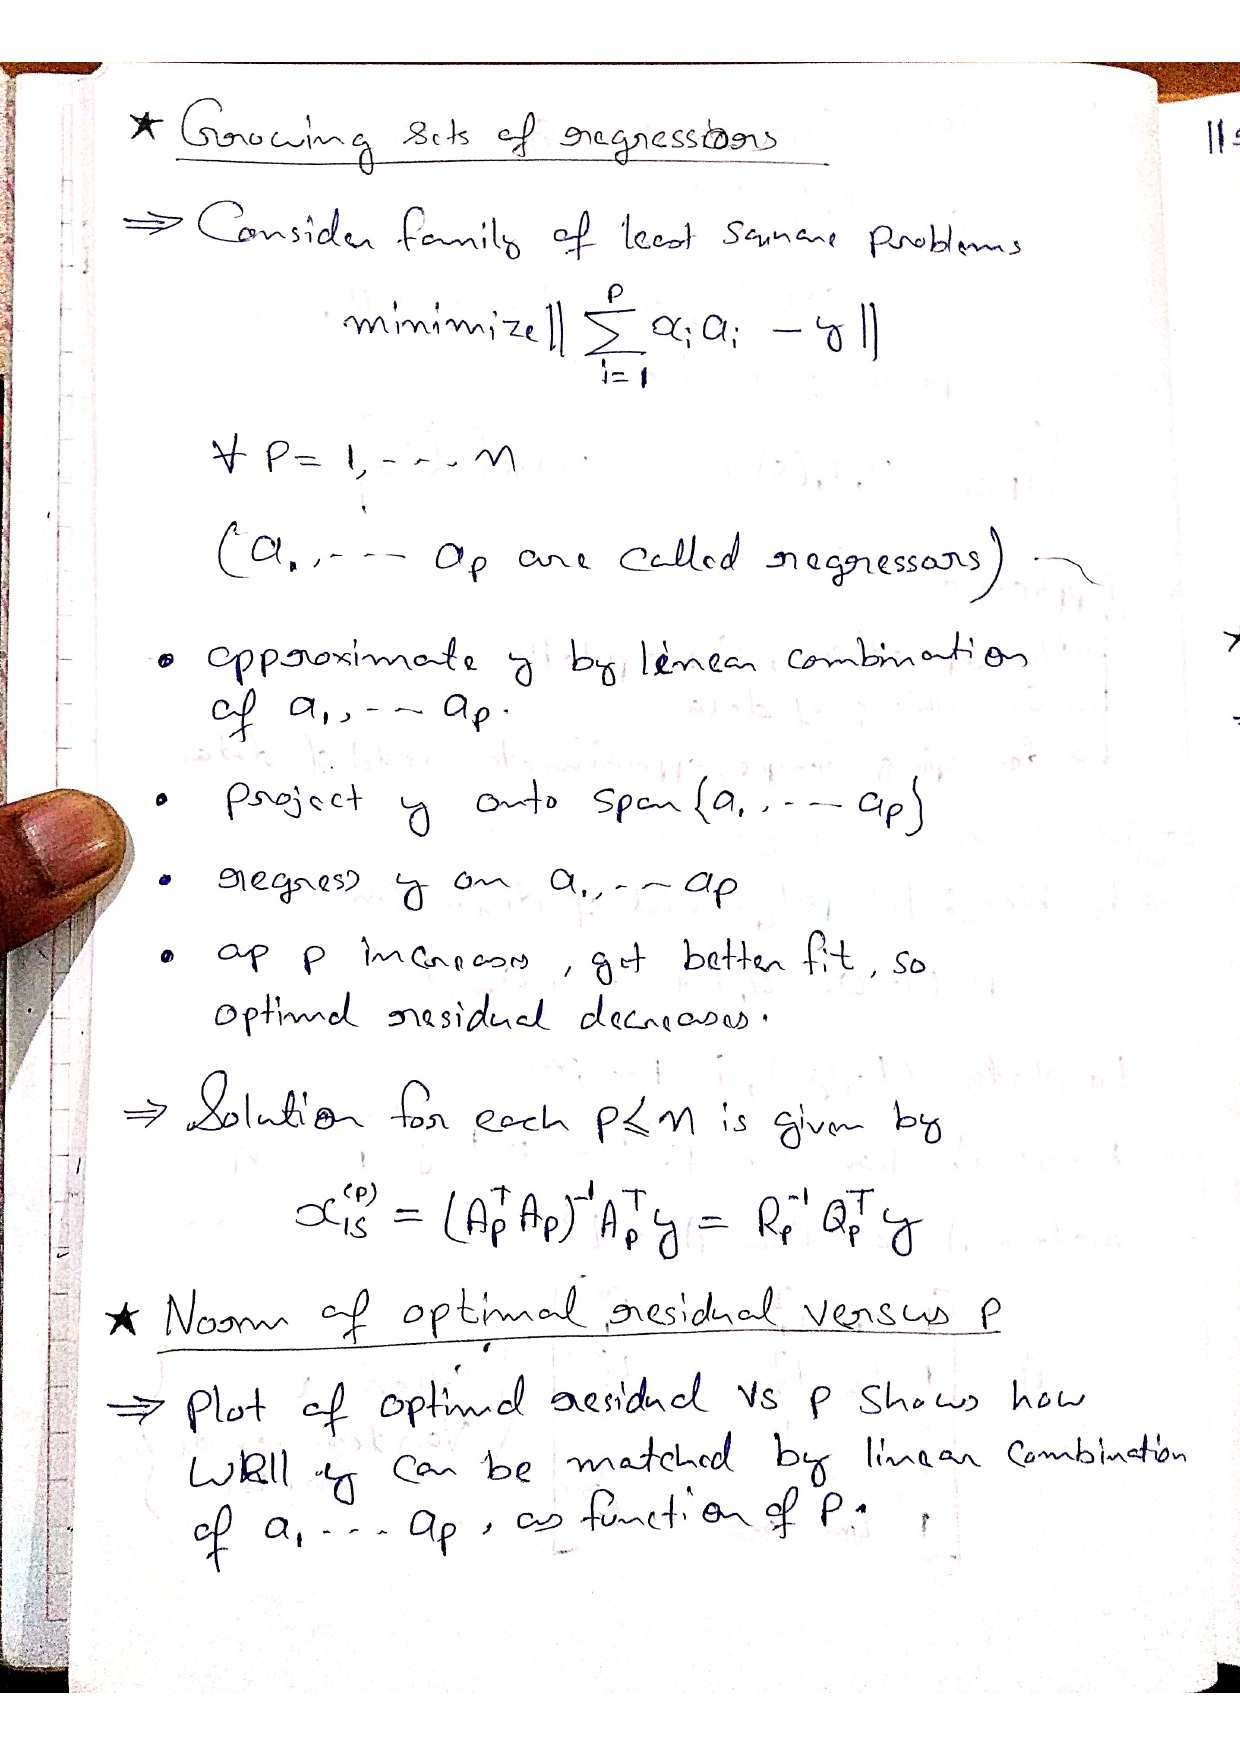 ★ Growing sets of regressors
⇒ Consider family of least square problems
minimize || ∑_{i=1}^{p} x_i a_i − y ||
∀ P = 1, - - - . n
(a_1, - - - a_p are called regressors)
• approximate y by linear combination
of a_1, - - a_p.
• project y onto span {a_1, . - - a_p}
• regress y on a_1, - - a_p
• ap p increases, get better fit, so
optimal residual decreases.
⇒ Solution for each p ≤ n is given by
x_{ls}^{(p)} = (A_p^T A_p)^{-1} A_p^T y = R_p^{-1} Q_p^T y
★ Norm of optimal residual versus p
⇒ Plot of optimal residual vs p shows how
well y can be matched by linear combination
of a_1 - - - a_p, as function of P.